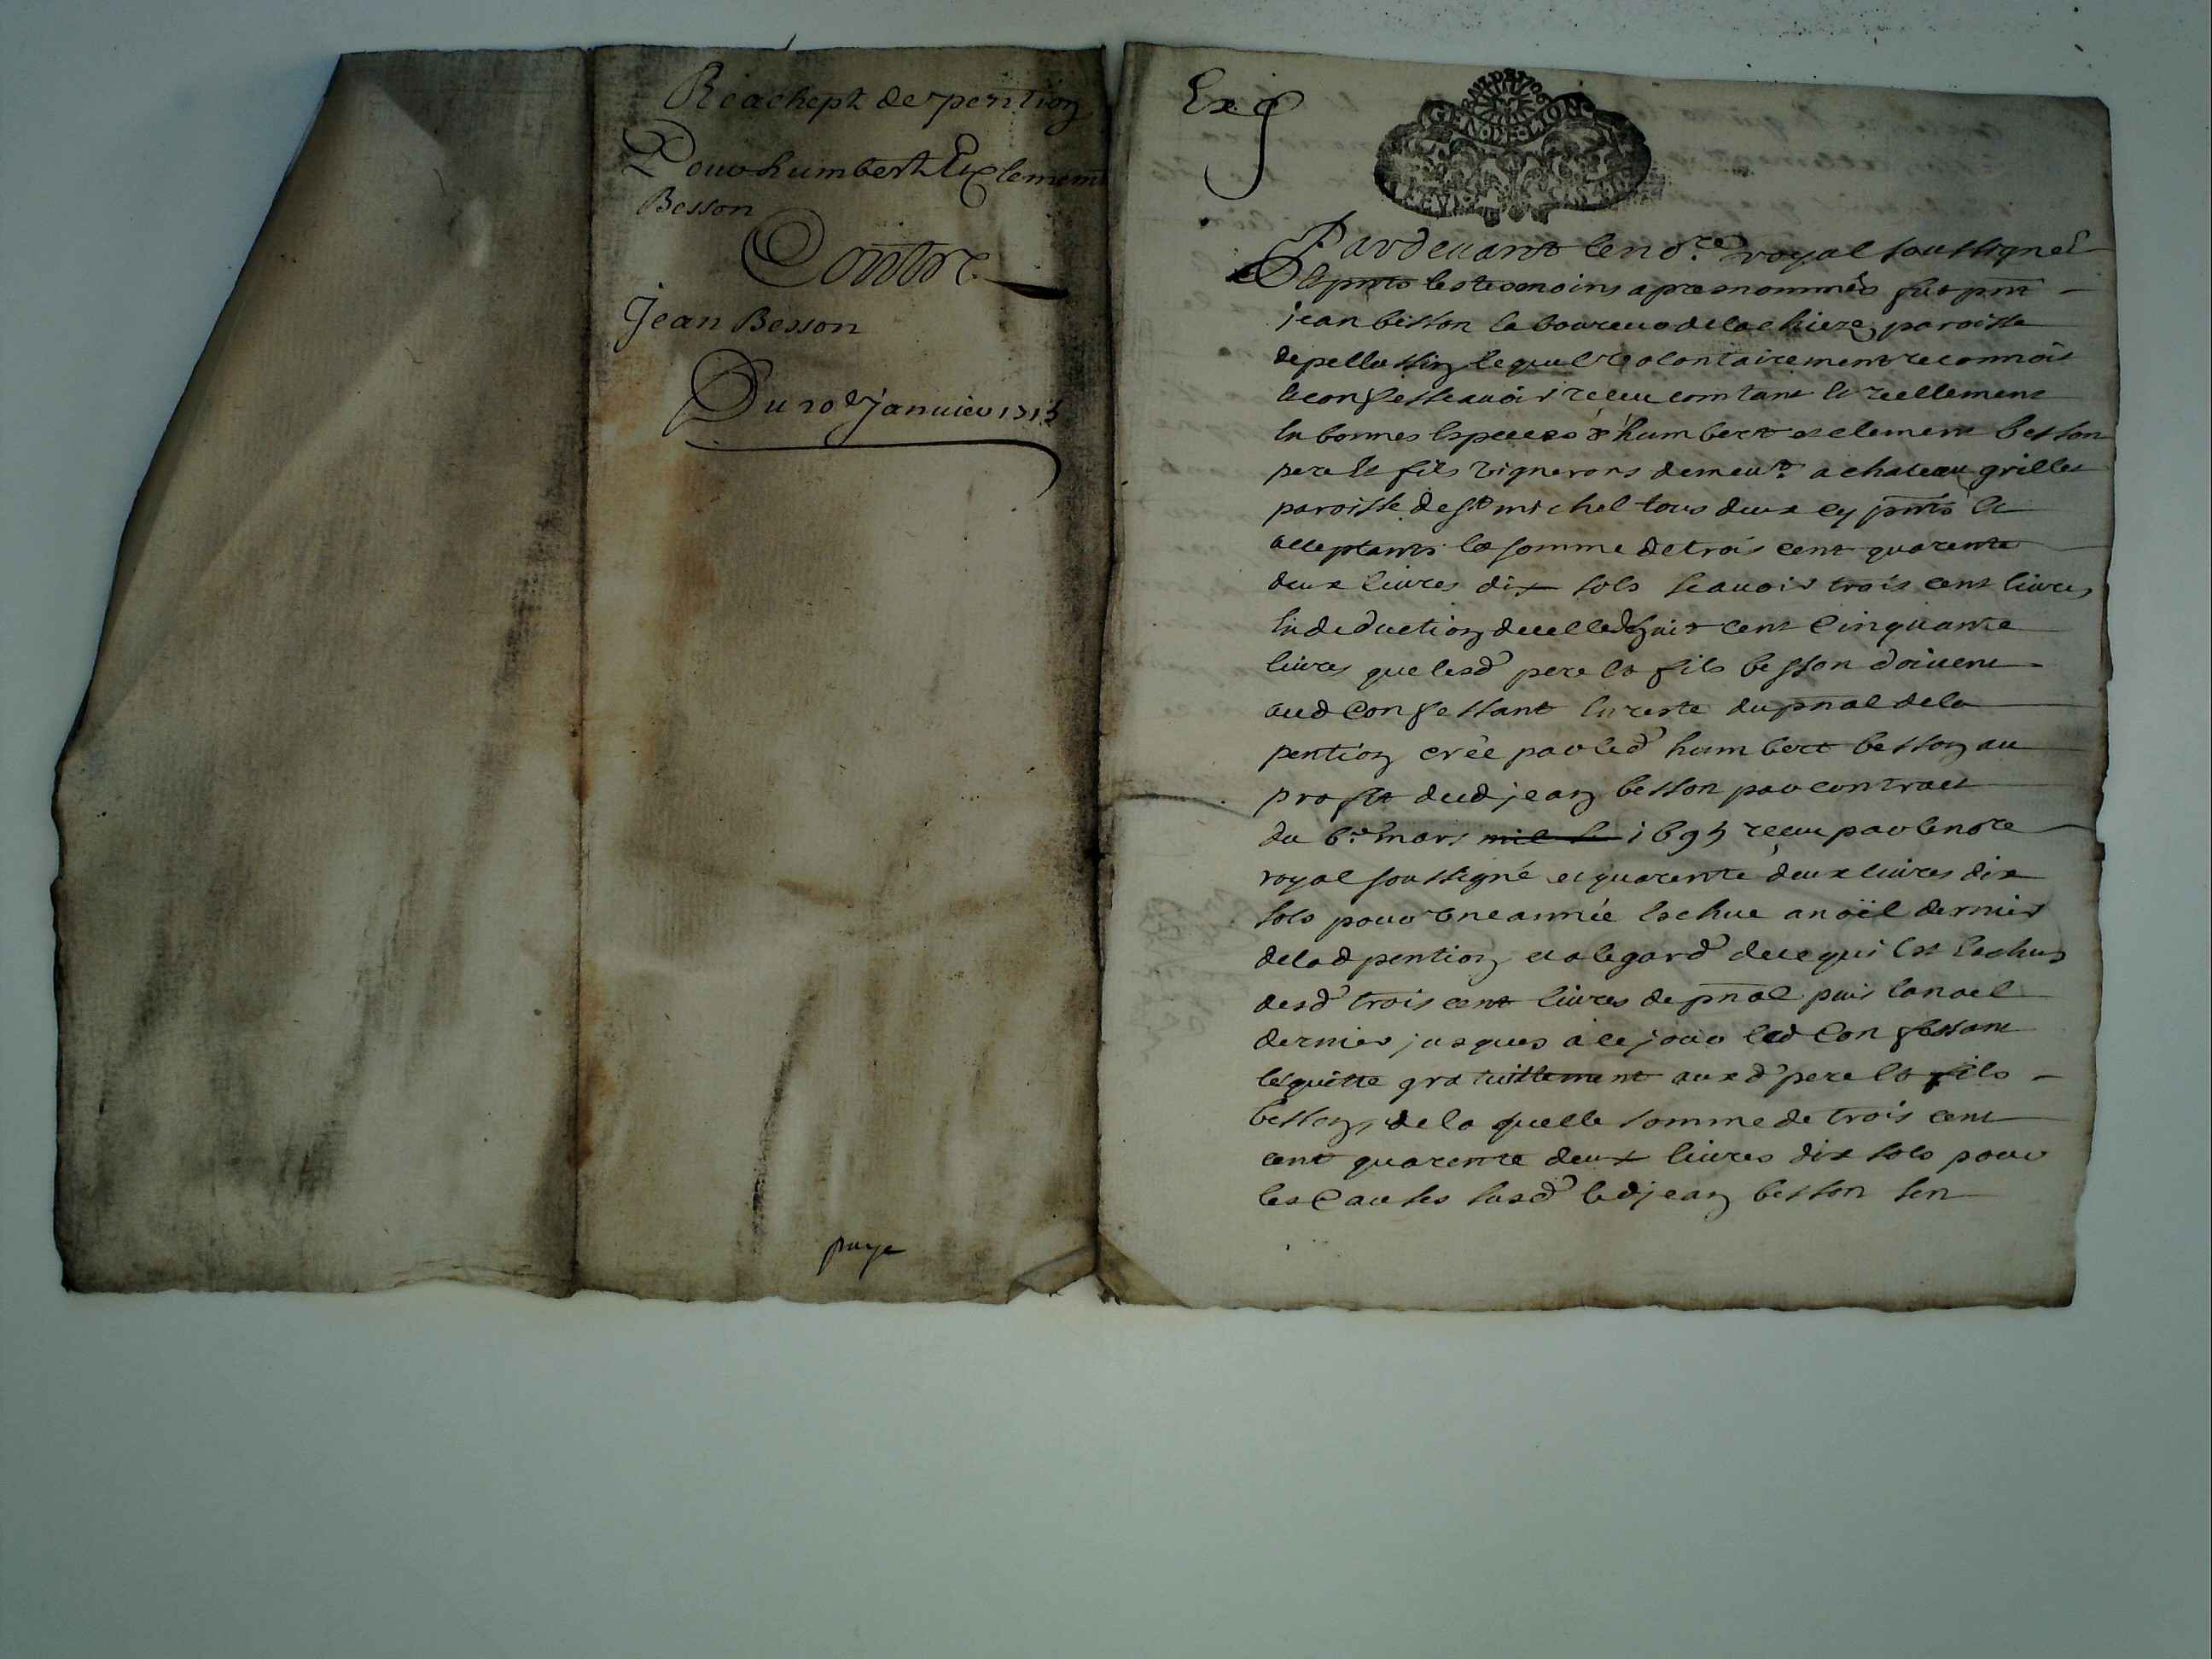 Réachept de pention
Pour humbert Et clement
Besson
Contre
Jean Besson
Du 10e Januier 1715
paye
Exp
GEN DE LION
Pardeuant le nore royal soussigné
Et pnts les tesmoins apres nommés fut pnt
jean besson laboureur de la chieze paroisse
de pellussin lequel volontairement reconnois
et confesse auoir receu comtant et reellement
En bonnes Especes d'humbert et clement besson
pere Et fils vignerons demeurt a chateau grillet
paroisse de st michel tous deux cy pnts Et
acceptants la somme de trois cent quarente
deux liures dix sols scauoir trois cent liures
En deduction de celle d'huit cent Cinquante
liures que lesd pere Et fils besson doiuent
aud Confessant En reste du pnal de la
pention crée par led humbert besson au
profit dud jean besson par contract
du 6e mars mil s 1695 receu par le nore
royal soussigné et quarente deux liures dix
sols pour vne année Eschue a noël dernier
de lad pention et a legard de ce qui Est Eschus
desd trois cent liures de pnal puis la noel
dernier jusques a ce jour led Confessant
les quitte gratuittement auxd pere Et fils
besson, de la quelle somme de trois cent
cent quarente deux liures dix sols pour
les Causes susd led jean besson sen